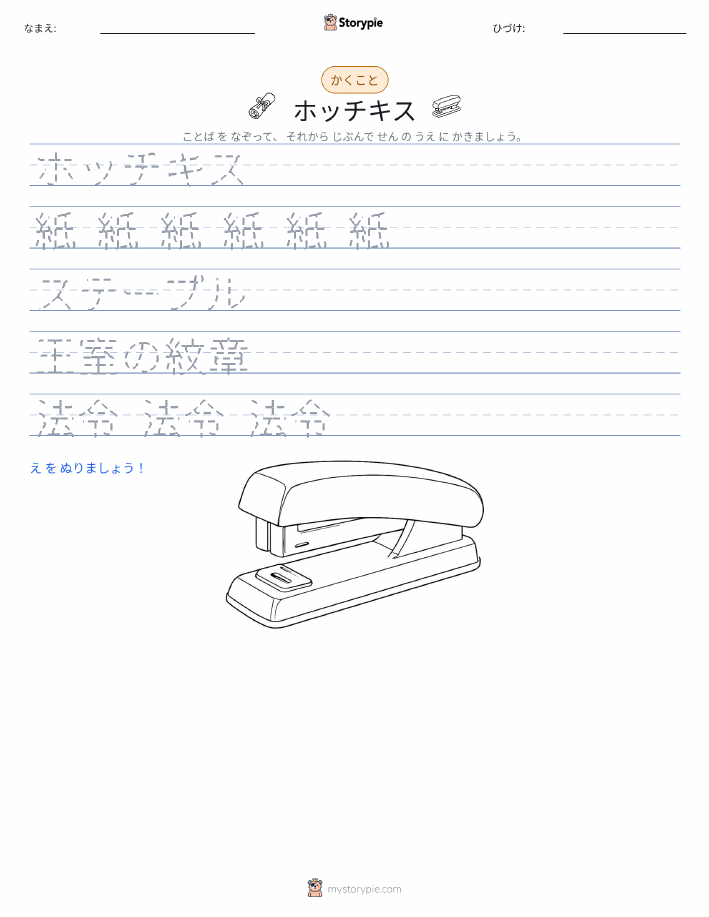 なまえ:
Storypie
ひづけ:
かくこと
ホッチキス
ことば を なぞって、 それから じぶんで せん の うえ に かきましょう。
ホッチキス
紙 紙 紙 紙 紙 紙
ステープル
王室の紋章
法令 法令 法令
え を ぬりましょう！
mystorypie.com